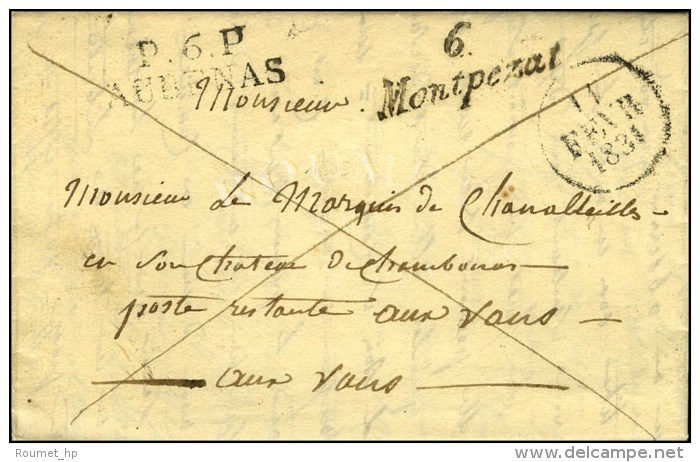 P. 6. P
AUBENAS
6.
Montpezat
11
FEVR
1831
Monsieur.
Monsieur Le Marquis de Chanalleilles
en son Chateau de Chambonas
poste restante aux vans
aux vans
Roumet_hp
delcampe.net